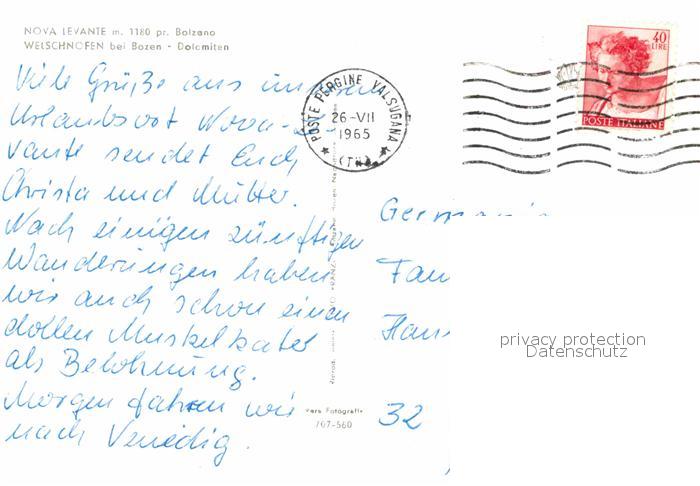 NOVA LEVANTE m. 1180 pr. Bolzano
WELSCHNOFEN bei Bozen - Dolomiten
Viele Grüße aus unserem
Urlaubsort Nova-Le-
vante sendet Euch
Christa und Mutter.
Nach einigen zünftigen
Wanderungen haben
wir auch schon einen
dollen Muskelkater
als Belohnung.
Morgen fahren wir
nach Venedig.
POSTE PERGINE VALSUGANA
26-VII
1965
(TN)
40
LIRE
POSTE ITALIANE
vera Fotografia
707-560
Germania
Fam
Hans
32
privacy protection
Datenschutz